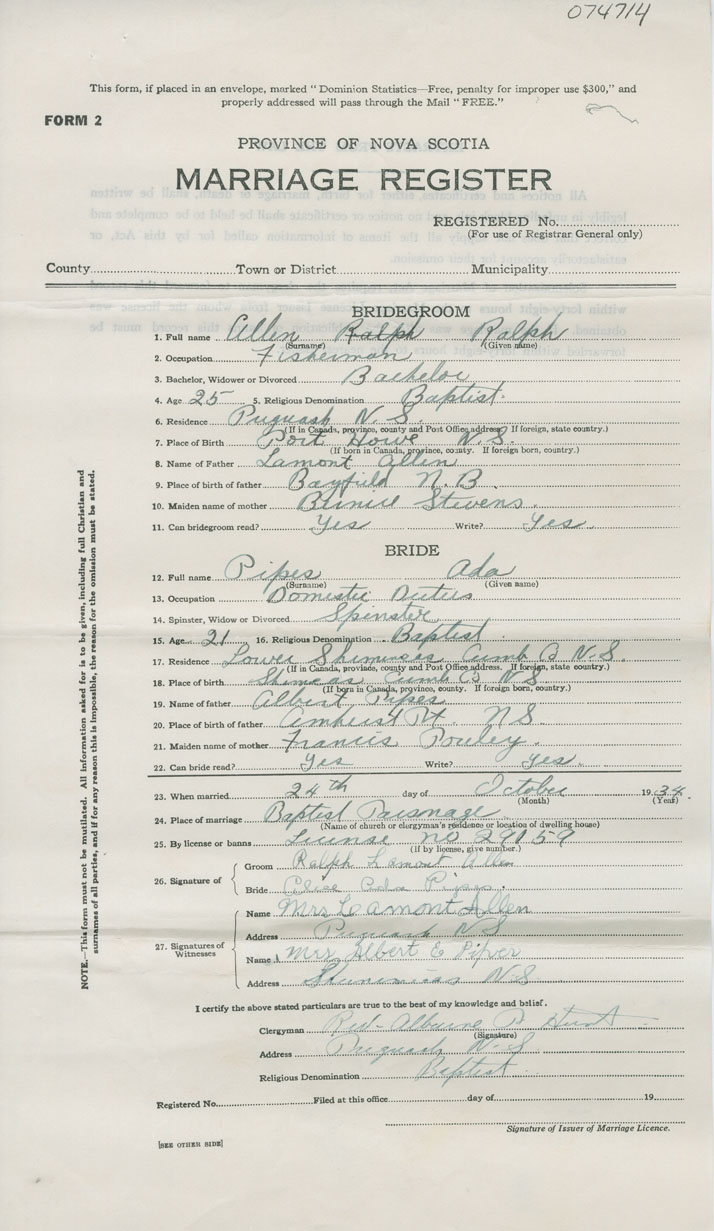 074714
This form, if placed in an envelope, marked "Dominion Statistics—Free, penalty for improper use $300," and
properly addressed will pass through the Mail "FREE."
FORM 2
PROVINCE OF NOVA SCOTIA
MARRIAGE REGISTER
REGISTERED No.
(For use of Registrar General only)
County Town or District Municipality
BRIDEGROOM
1. Full name Allen Ralph Ralph
(Surname) (Given name)
2. Occupation Fisherman
3. Bachelor, Widower or Divorced Bachelor
4. Age 25 5. Religious Denomination Baptist.
6. Residence Pugwash N.S.
(If in Canada, province, county and Post Office address. If foreign, state country.)
7. Place of Birth Port Howe N.S.
(If born in Canada, province, county. If foreign born, country.)
8. Name of Father Lamont Allen
9. Place of birth of father Bayfield N.B.
10. Maiden name of mother Bernice Stevens
11. Can bridegroom read? Yes Write? Yes
BRIDE
12. Full name Pipes Ada
(Surname) (Given name)
13. Occupation Domestic Duties
14. Spinster, Widow or Divorced Spinster
15. Age 21 16. Religious Denomination Baptist
17. Residence Lower Shinimicas Cumb Co N.S.
(If in Canada, province, county and Post Office address. If foreign, state country.)
18. Place of birth Cumb Co N.S.
(If born in Canada, province, county. If foreign born, country.)
19. Name of father Albert Pipes
20. Place of birth of father Amherst Pt. NS
21. Maiden name of mother Francis
22. Can bride read? Yes Write? Yes
23. When married 24th day of October 1934
(Month) (Year)
24. Place of marriage Baptist Parsonage
(Name of church or clergyman's residence or location of dwelling house)
25. By license or banns License no 29159
(If by license, give number.)
26. Signature of
Groom Ralph Lamont Allen
Bride Ada Pipes
27. Signatures of Witnesses
Name Mrs Lamont Allen
Address Pugwash NS
Name Mrs Albert E
Address N.S
I certify the above stated particulars are true to the best of my knowledge and belief.
Clergyman Rev. Hunt
(Signature)
Address Pugwash N.S
Religious Denomination Baptist
Registered No. Filed at this office day of 19
Signature of Issuer of Marriage Licence.
[SEE OTHER SIDE]
NOTE.—This form must not be mutilated. All information asked for is to be given, including full Christian and
surnames of all parties, and if for any reason this is impossible, the reason for the omission must be stated.